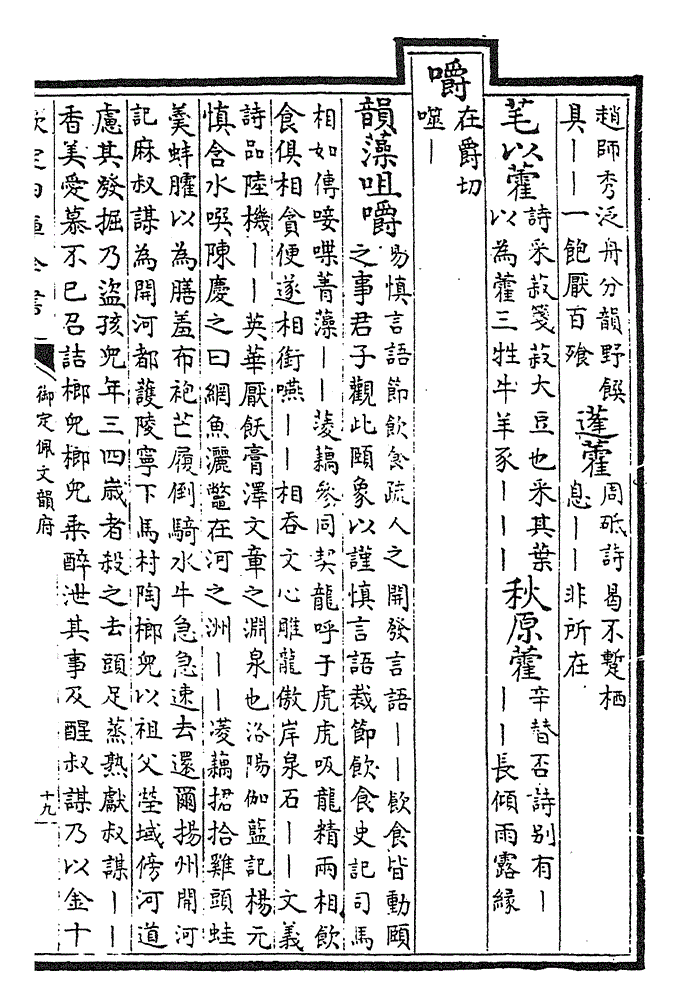 趙師秀泛舟分韻野饌
具丨丨一飽厭百飱
蓬藿
周砥詩曷不蹔栖
息丨丨非所在
芼以藿
詩采菽箋菽大豆也采其葉
以為藿三牲牛羊豕丨丨丨
秋原藿
辛替否詩别有丨
丨丨長傾雨露緣
嚼
在爵切
噬丨
韻藻咀嚼
易慎言語節飲食疏人之開發言語丨丨飲食皆動頤
之事君子觀此頤象以謹慎言語裁節飲食史記司馬
相如傳唼喋菁藻丨丨蔆藕參同契龍呼于虎虎吸龍精兩相飲
食俱相貪便遂相銜嚥丨丨相吞文心雕龍傲岸泉石丨丨文義
詩品陸機丨丨英華厭飫膏澤文章之淵泉也洛陽伽藍記楊元
慎含水噀陳慶之曰網魚漉鼈在河之洲丨丨蔆藕捃拾雞頭蛙
羮蚌臛以為膳羞布袍芒履倒騎水牛急急速去還爾揚州開河
記麻叔謀為開河都護陵寧下馬村陶榔兒以祖父塋域傍河道
慮其發掘乃盜孩兒年三四歲者殺之去頭足蒸熟獻叔謀丨丨
香美愛慕不已召詰榔兒榔兒乘醉泄其事及醒叔謀乃以金十
御定佩文韻府
十九